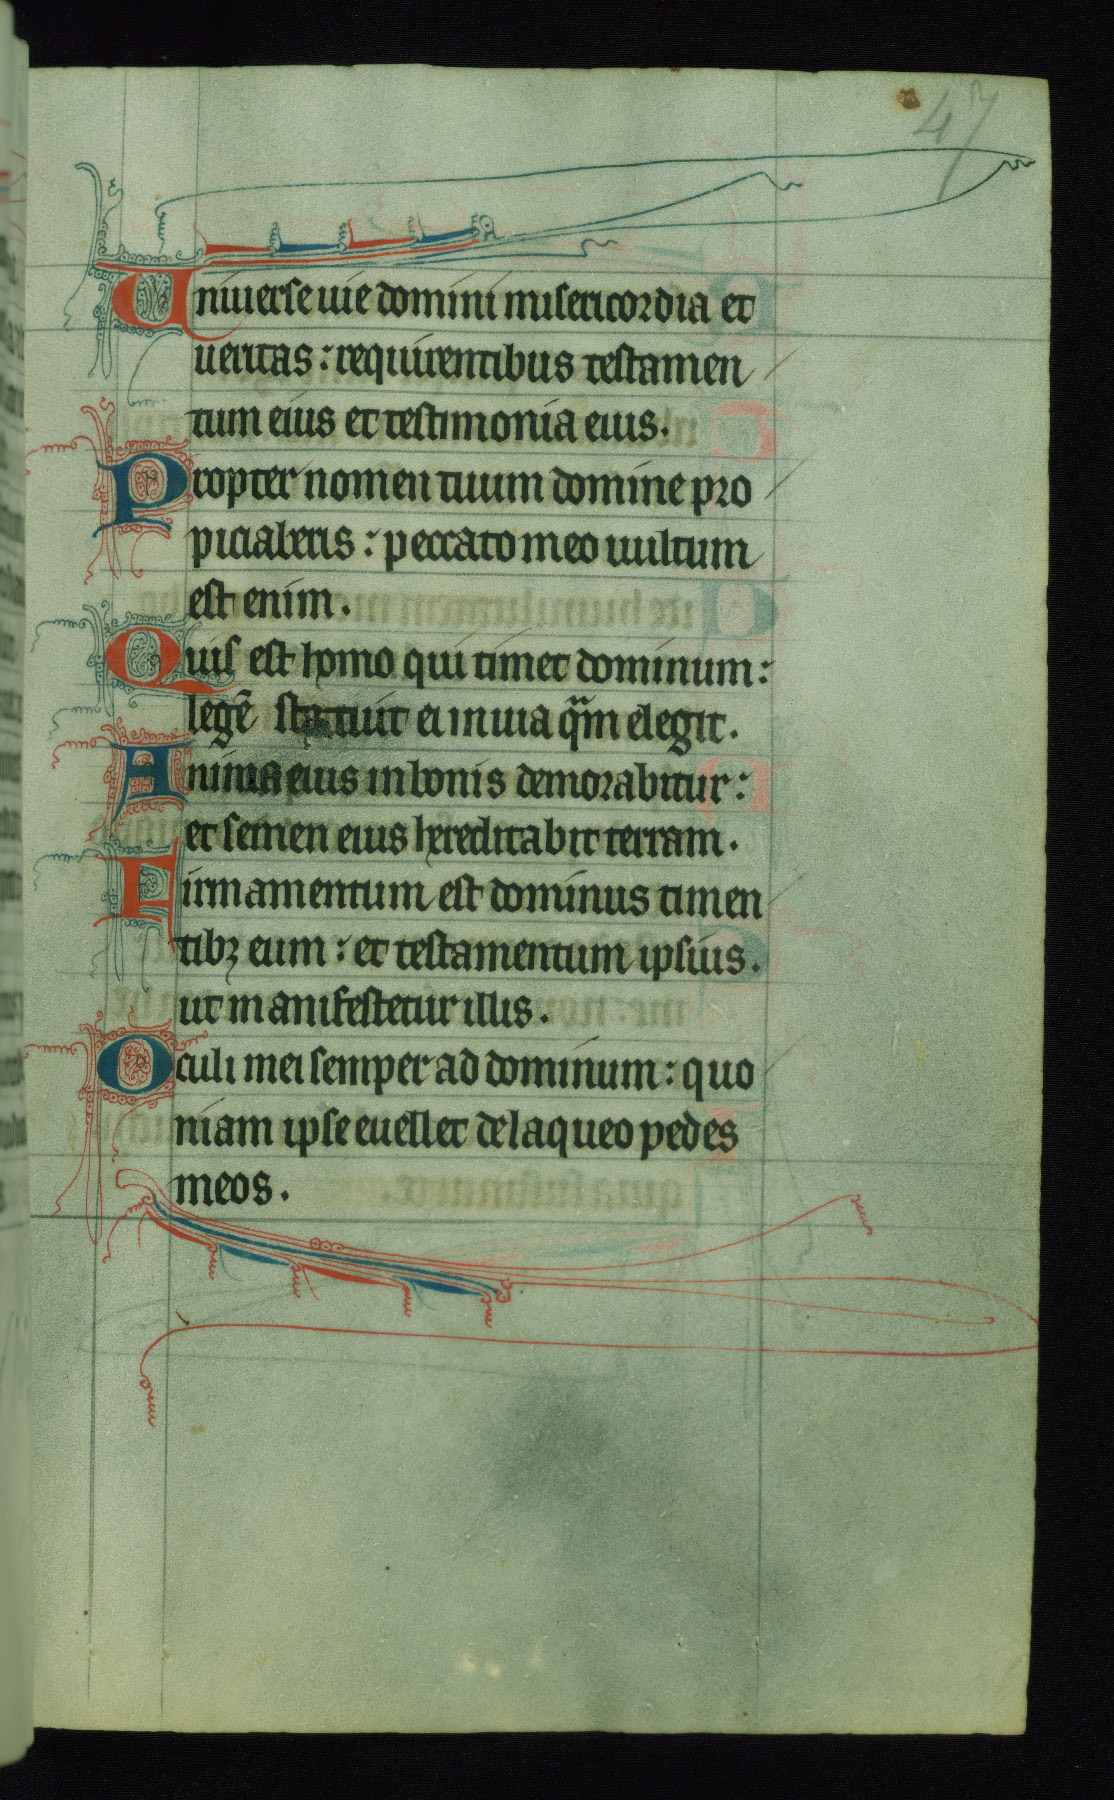 47
Uniuerse uie domini misericordia et
ueritas: requirentibus testamen
tum eius et testimonia eius.
Propter nomen tuum domine pro
piciaberis: peccato meo multum
est enim.
Quis est homo qui timet dominum:
legē statuit ei in uia qͣm elegit.
Anima eius in bonis demorabitur:
et semen eius hereditabit terram.
Firmamentum est dominus timen
tibꝫ eum: et testamentum ipsius.
ut manifestetur illis.
Oculi mei semper ad dominum: quo
niam ipse euellet de laqueo pedes
meos.